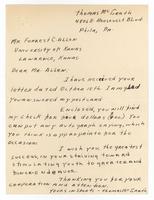 Thomas McGrath
4800 E Roosevelt Blvd
Phila, Pa.
Mr. Forrest C. Allen
University of Kansas
Lawrence, Kansas
Dear Mr. Allen,
I have received your
letter dated October 16th. I am glad
you answered my postcard
Enclosed, you will find
my check for dollar ($1.00) You
can put any autograph saying, which
you think is appropriate for the
occasion.
I wish you the greatest
success, in your striving toward
stimulating youth to greater and
toward endeavor.
Thanking you for your
cooperation and attention.
Yours in Sports - Thomas McGrath